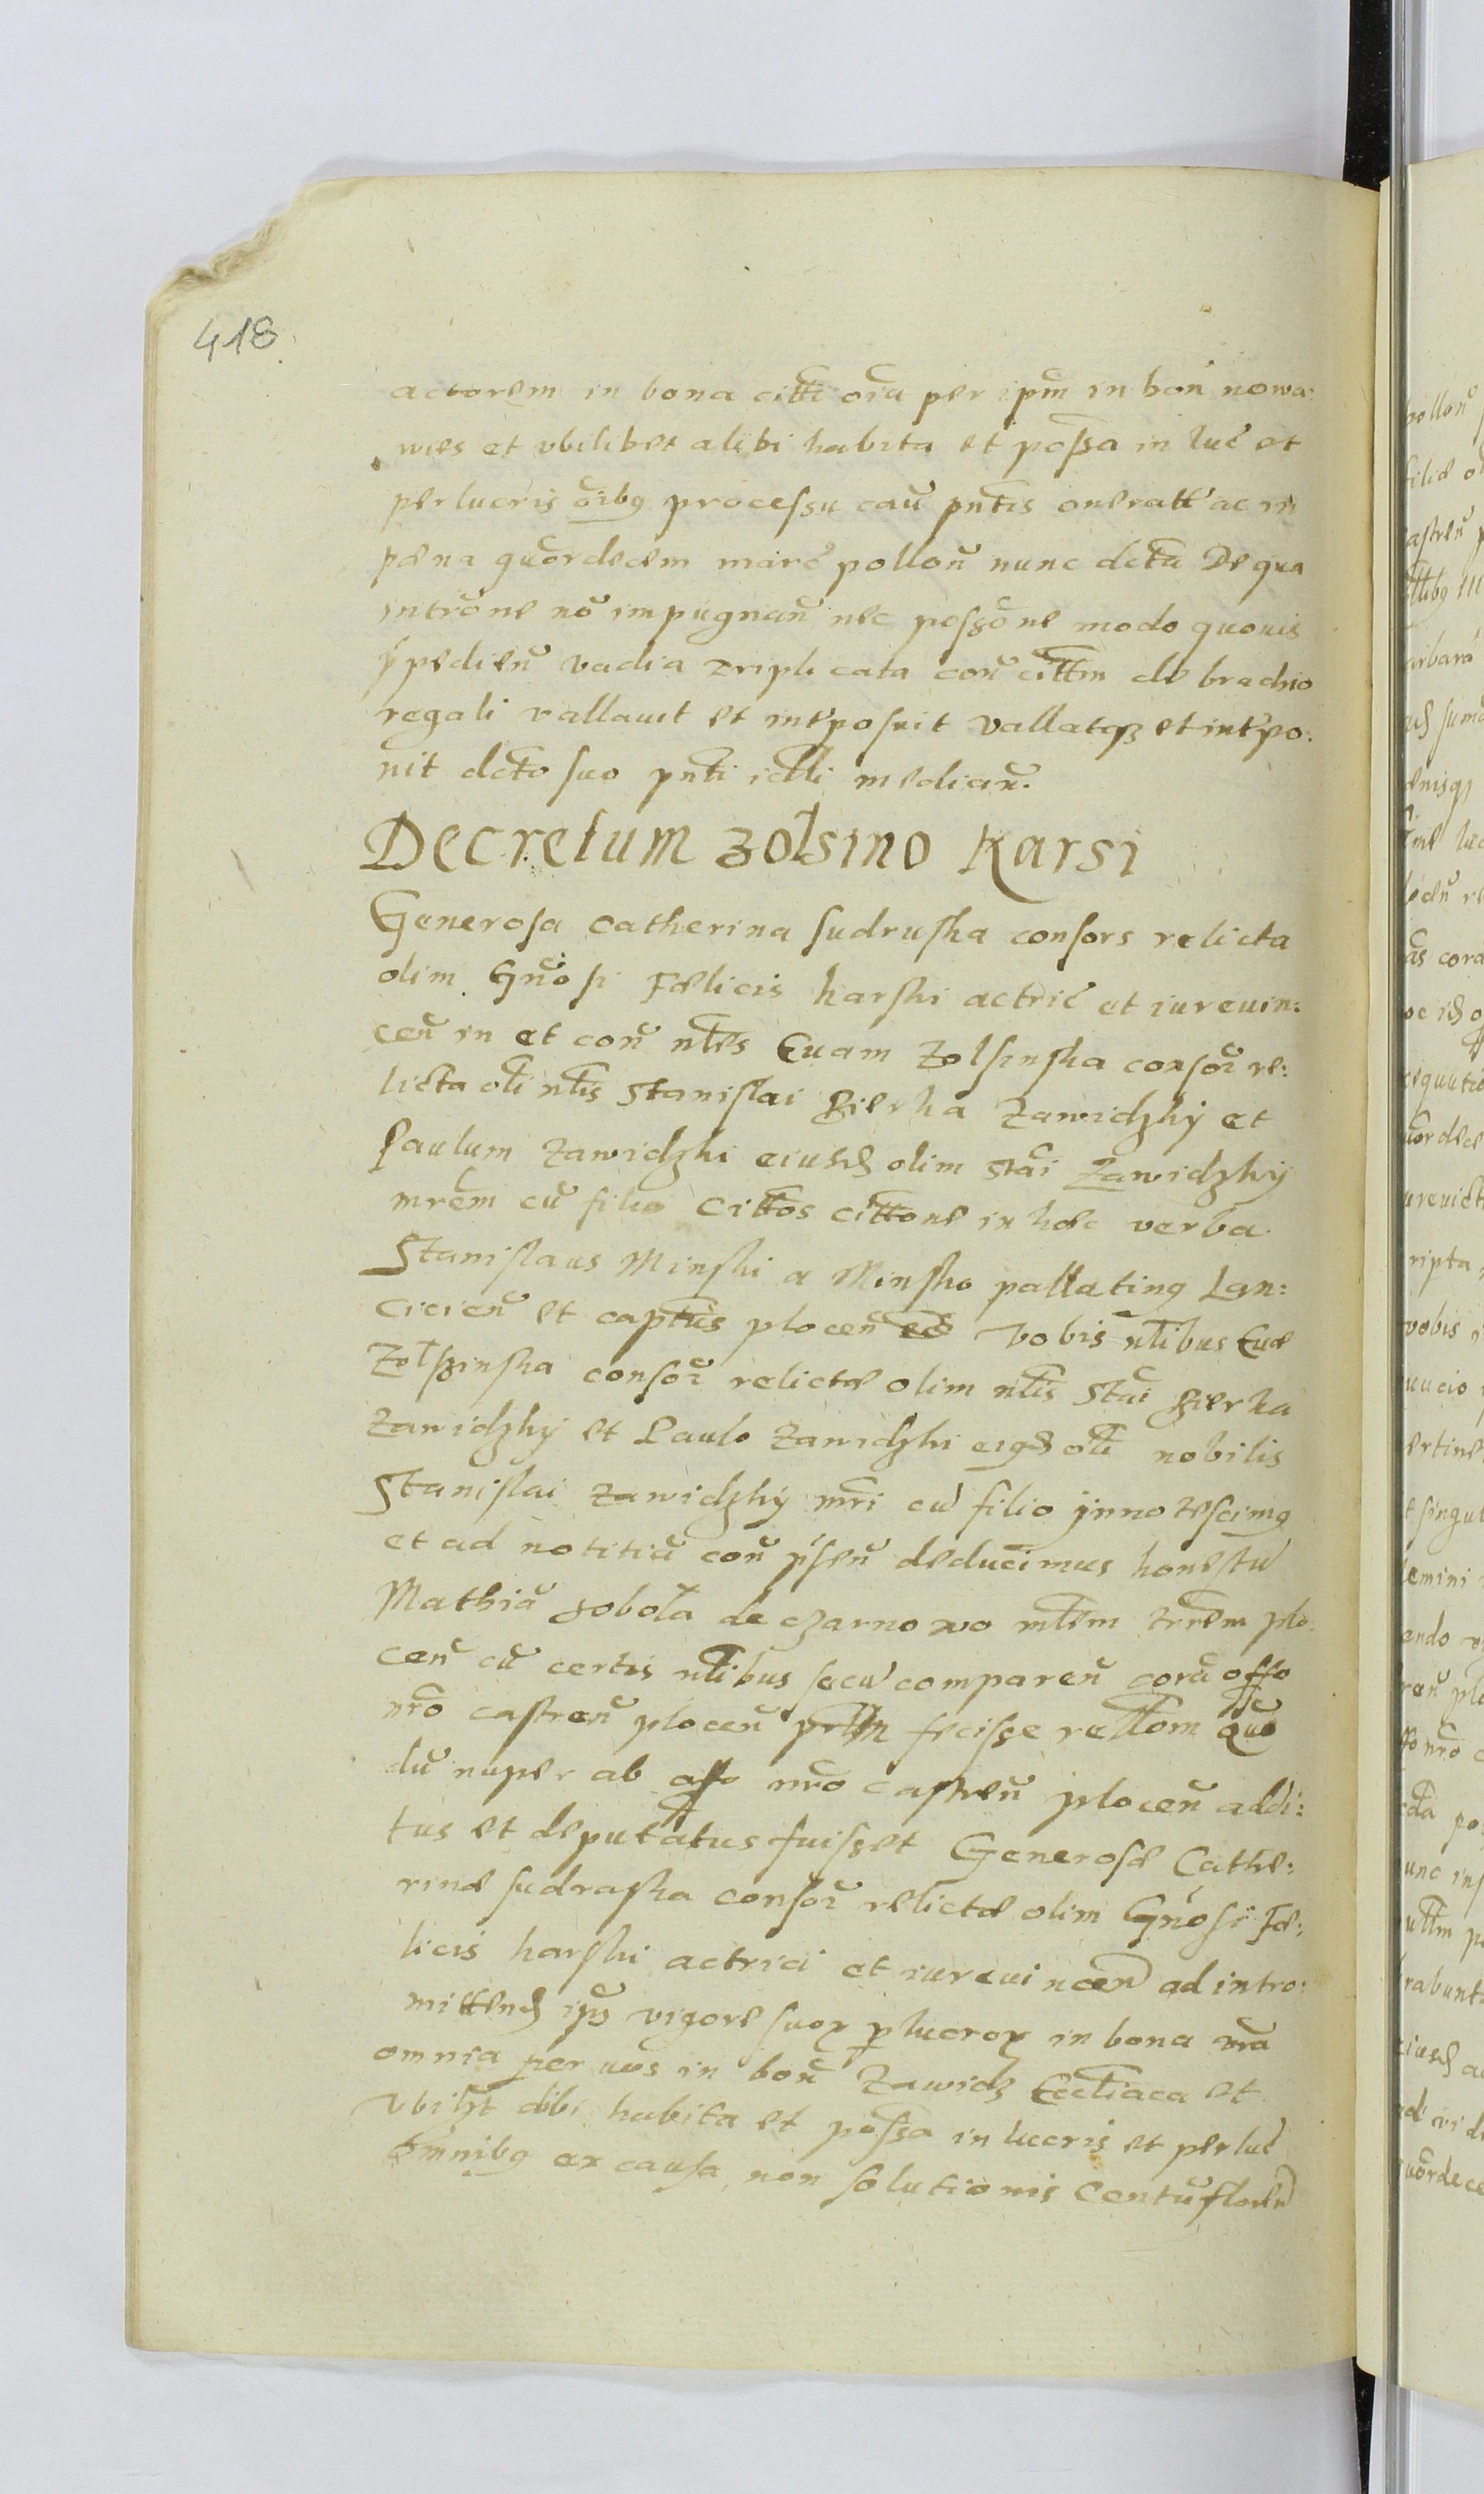 418
actorem in bona citti oīa per ipm in bon nowa:
wies et vbilibet alibi habita et possa in luc et
perlucris oibq processu cau pntis oneratt ac in
pæna quordecem marc pollon nunc dcta De qua
introne no impugnan nec possone modo quouis
ipedien vadia triplicata con cittm de brachio
regali vallauit et intposuit Vallatqz et intpo:
nit dcto suo pnti icelli median.
Decretum zolsino Karsi
Generosa Catherina sudruska consors relicta
olim Gnosi Fælicis karski actric et iureuin:
cen in et con nles Euam Zolsinska consor re:
licta oli nlis Stanislai Bierka Zawidzky et
Paulum Zawidzki eiusd olim Stai Zawidzky
mrem cu filio Cittos cittone in hæc verba.
Stanislaus Minski a Minsko pallatinq Lan:
cicien et captus plocen Vobis nlibus Euæ
Zolszinska consor relictæ olim nlis Stai Bierka
Zawidzky et Paulo Zawidzki eiqd oli nobilis
Stanislai Zawidzky mri cu filio jnnotescimq
et ad notitia con psen deducimus honestu
Mathia sobota de czarnowo mlem trrem plo
cen cu certis nlibus secu comparen cora offo
nro castren plocen fecisse rellom quo
du nuper ab offo nro castren plocen addi:
tus et deputatus fuisset Generosæ Cathe:
rinæ sudraska consor relictæ olim Gnosi Fæ:
licis karski actrici et iureuincen ad intro:
mittend ips vigore suoz p lucroz in bona vra
omnia per uos in bon Zawidz Eccliaca et
vbilt alibi habita et possa in lucris et perluc
omnibq ex causa non solutionis Centu floren